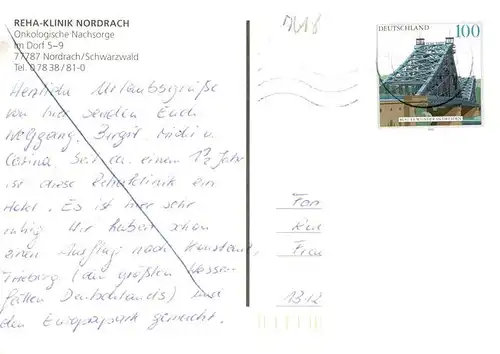 REHA-KLINIK NORDRACH
Onkologische Nachsorge
Im Dorf 5–9
77787 Nordrach/Schwarzwald
Tel. 0 78 38 / 81-0
Herzliche Urlaubsgrüße
von hier senden Euch
Wolfgang, Birgit, Michi u.
Corina. Seit ca. einem 1/2 Jahr
ist diese Rehaklinik ein
Hotel. Es ist hier sehr
ruhig. Wir haben schon
einen Ausflug nach Konstanz,
Trieberg (den größten Wasser-
fällen Deutschlands) und
den Europapark gemacht.
DEUTSCHLAND 100
BLAUES WUNDER DRESDEN
Fam